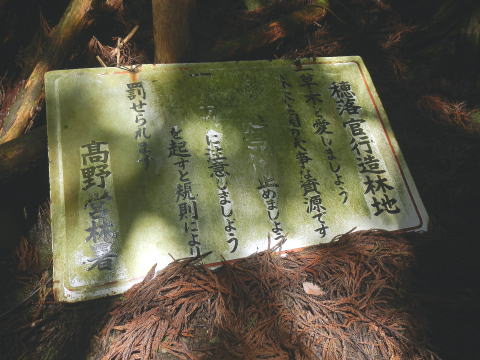 穂落官行造林地
草木を愛しましょう
は国の大事な資源です
は止めましょう
に注意しましょう
を起すと規則により
罰せられます
高野営林署